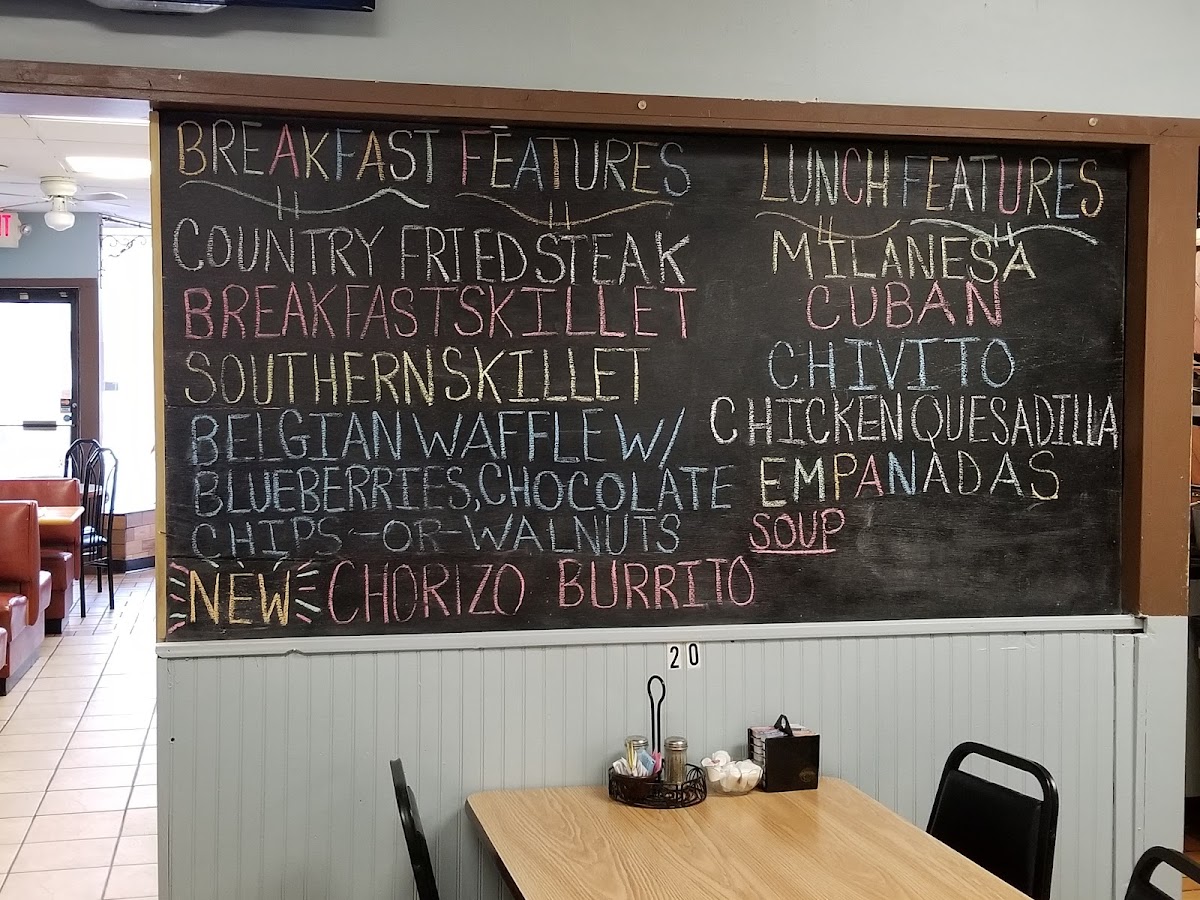 BREAKFAST FEATURES
COUNTRY FRIED STEAK
BREAKFAST SKILLET
SOUTHERN SKILLET
BELGIAN WAFFLE W/
BLUEBERRIES, CHOCOLATE
CHIPS -OR- WALNUTS
NEW CHORIZO BURRITO
LUNCH FEATURES
MILANESA
CUBAN
CHIVITO
CHICKEN QUESADILLA
EMPANADAS
SOUP
20